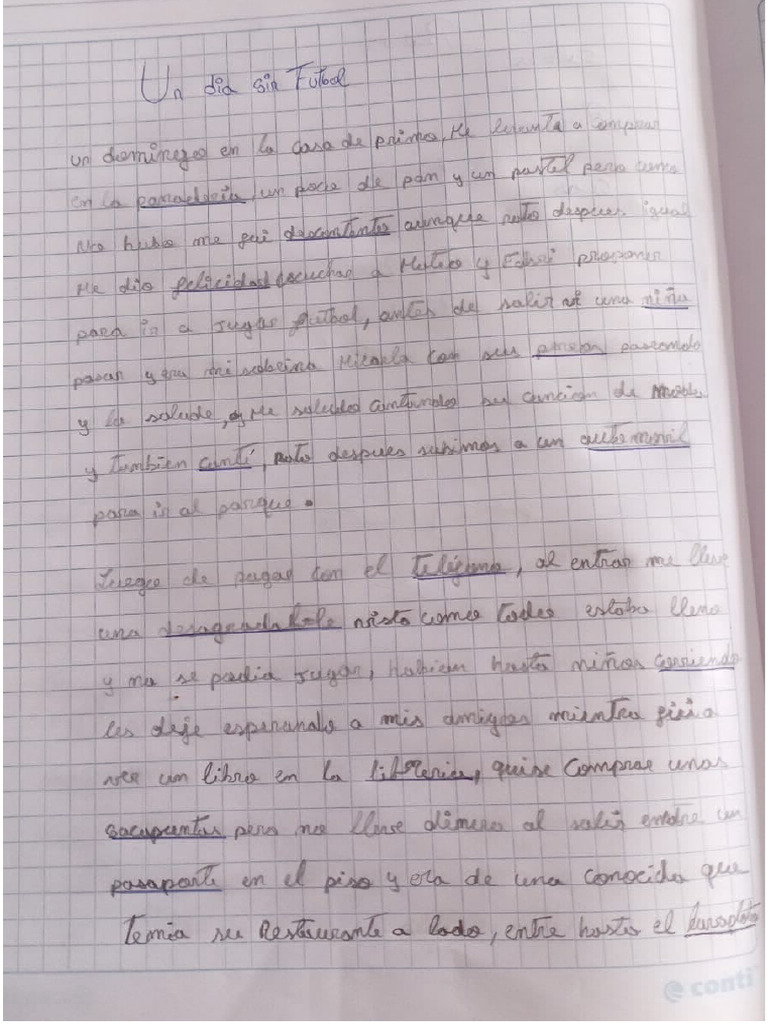 Un dia sin Futbol
un domingo en la casa de primo, Me levanta a comprar
en la panadería, un poco de pan y un pastel pero como
No hubo me fui descontento aunque rato despues igual
Me dio felicidad escuchar a Mateo y proponer
para ir a jugar futbol, antes de salir vi una niña
pasar y era mi sobrina Micaela con sus paseando
y la salude, Me saludo cantando su cancion de
y tambien canté, rato despues subimos a un automovil
para ir al parque.
Luego de jugar con el teléfono, al entrar me lleve
una desagradable vista como todo estaba lleno
y no se podia jugar, habian hasta niños corriendo
les deje esperando a mis amigos mientra fui a
ver un libro en la libreria, quise comprar unos
sacapuntas pero no lleve dinero al salir entre un
pasaporte en el piso y era de una conocida que
Tenia su Restaurante a lado, entre hasta el lavaplato
conti